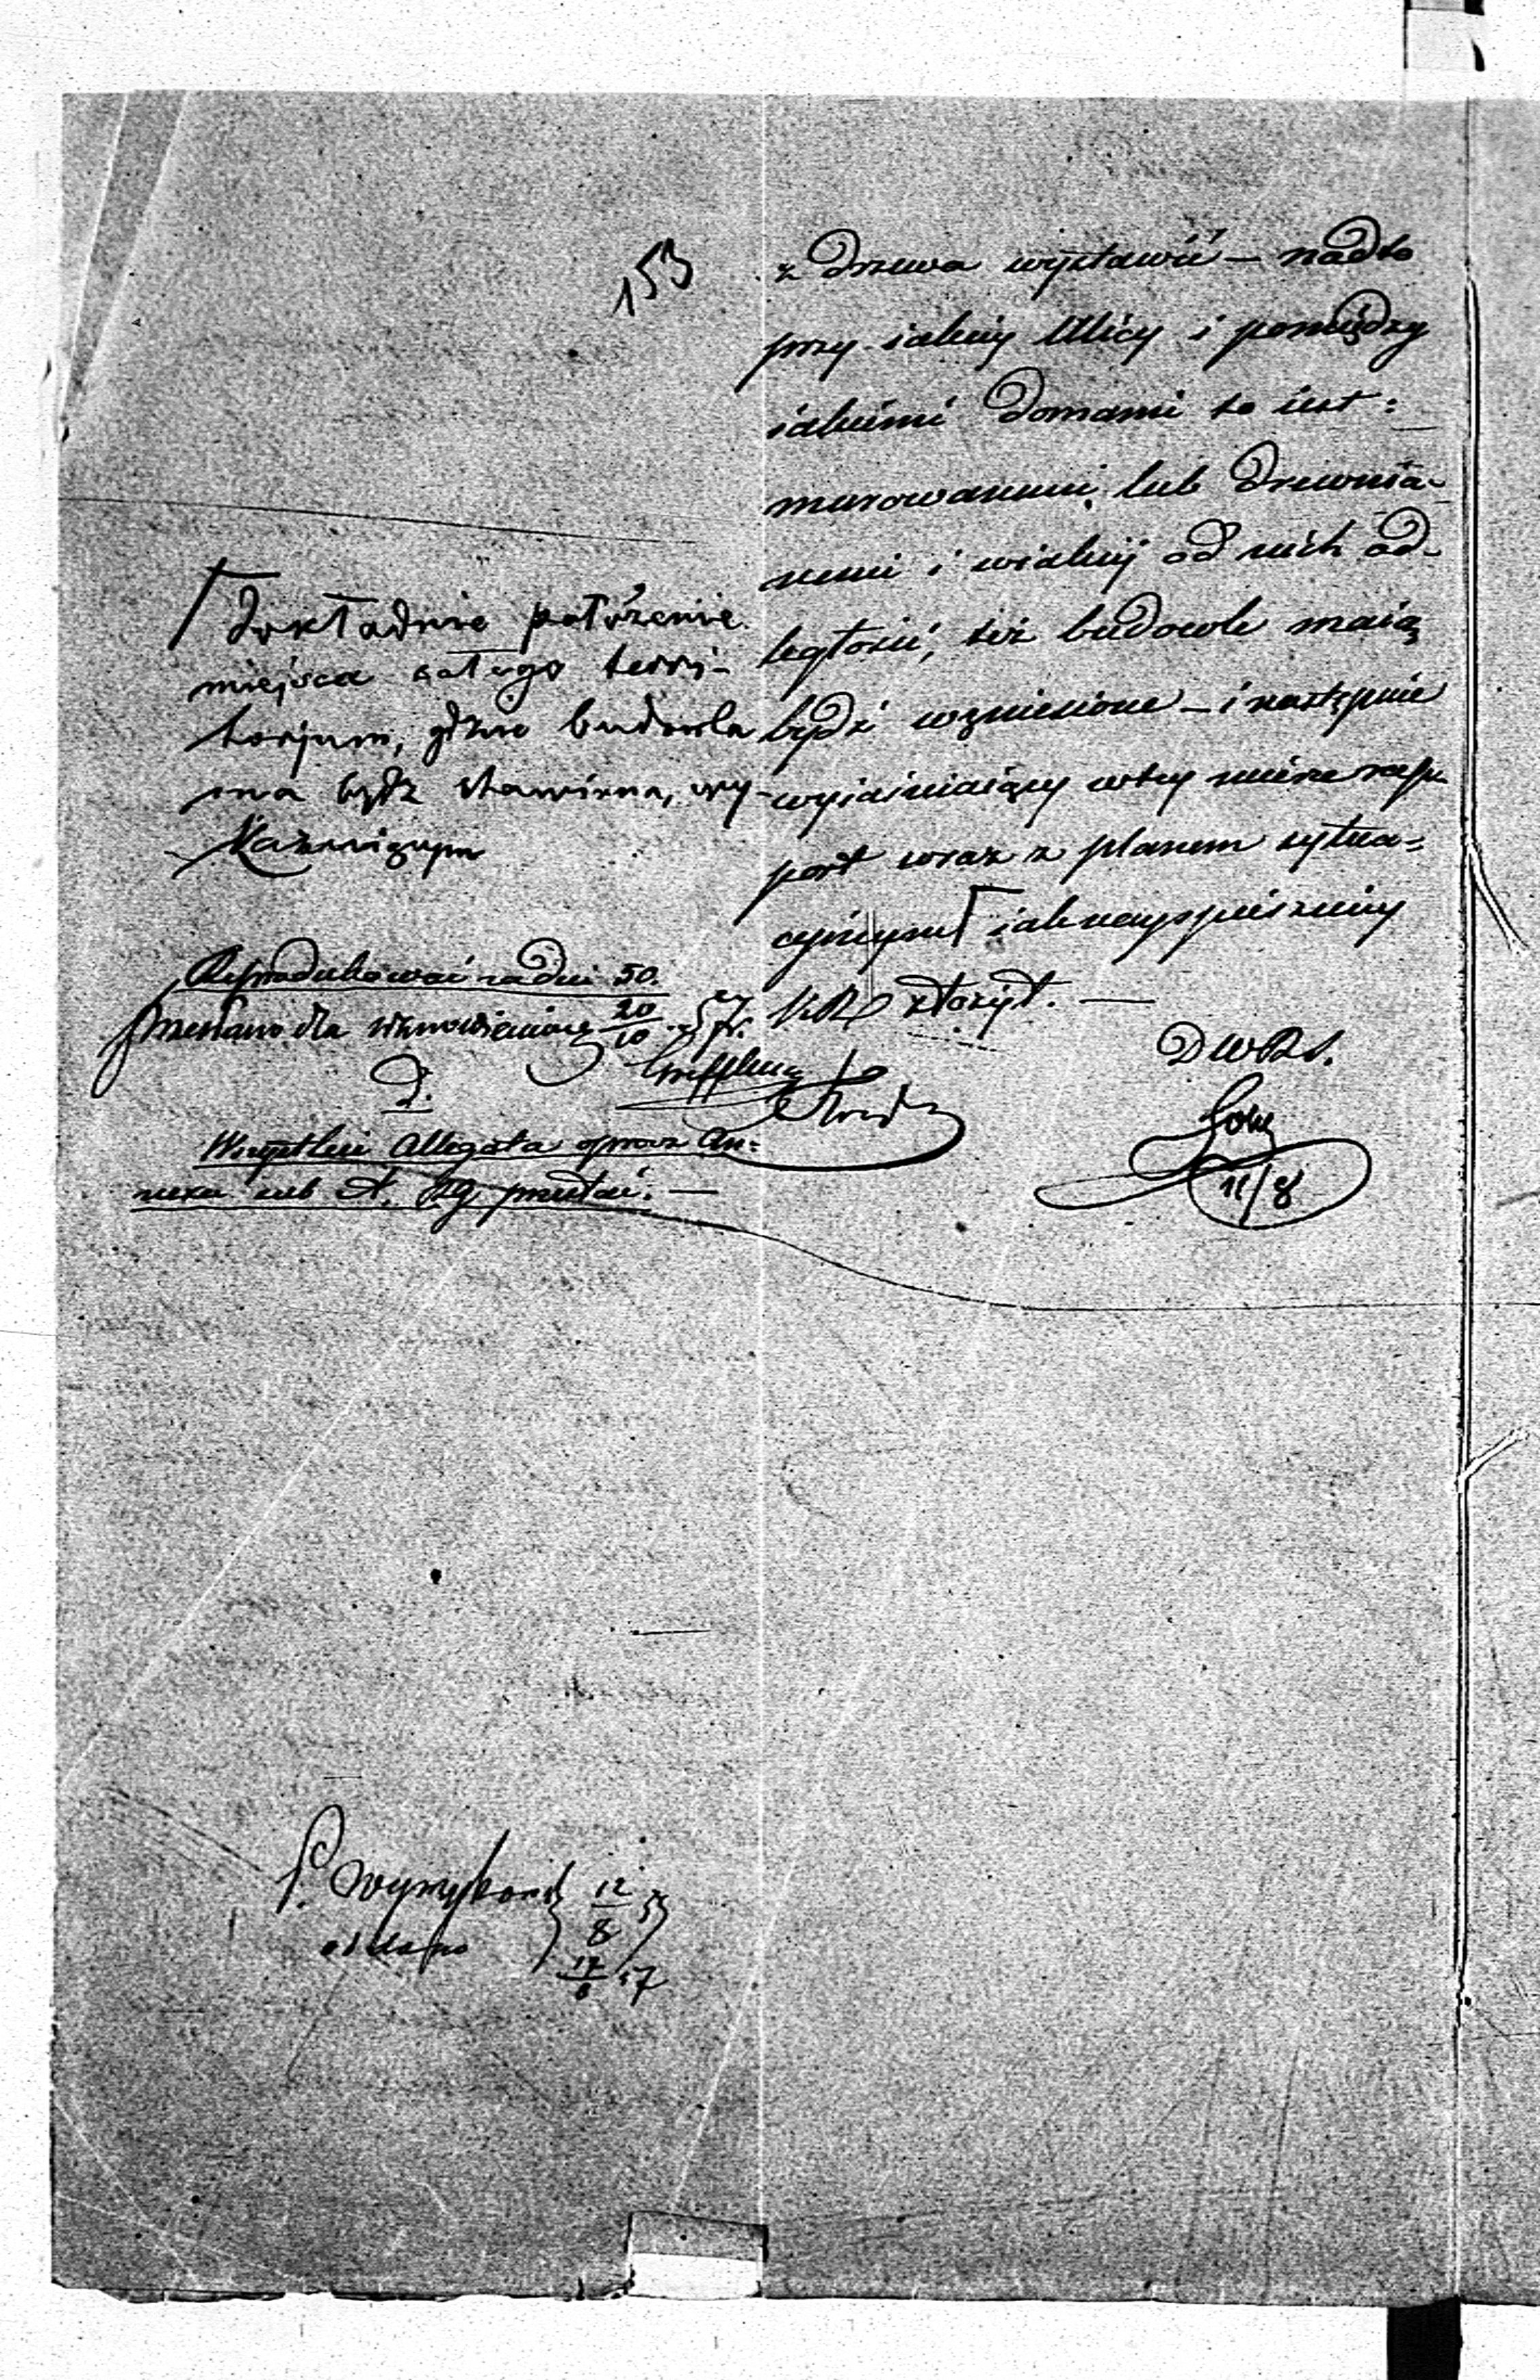 153
z drzewa wystawić — nadto
przy iakiey Ulicy i pomiędzy
iakiemi domami to iest:
murowanemi lub drewnia-
nemi i wiakiej od nich od-
ległości, też budowle maią
bydź wzniesione — i następnie
wyiaśniaiący wtey mierze rap-
port wraz z planem sytua-
cyjnym iaknayspieszniey
KR złożył. —
DWRS.
11/8
dokładnie położenie
miejsca całego terri-
torjum, gdzie budowla
ma bydź stawiana, wy-
kazującym
Reprodukować za dni 50.
20/10
D.
Wszystkie Allegata oprocz An-
nexu sub A. przesłać. —
P. 12/8 57
oddano
17/8 57